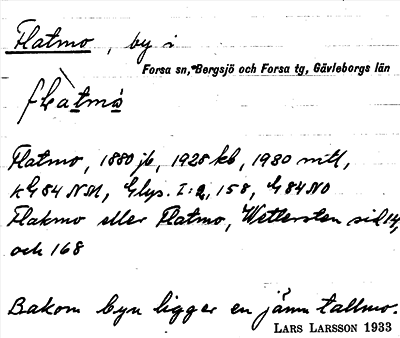 Flatmo, by i
Forsa sn, Bergsjö och Forsa tg, Gävleborgs län
flàtmò
Flatmo, 1880 jb, 1928 kb, 1930 mtl,
KG84 NM, Glys. I:2, 158, G 84 NO
Flakmo eller Flatmo, Wettersten sid 14,
och 168
Bakom byn ligger en jämn tallmo.
LARS LARSSON 1933